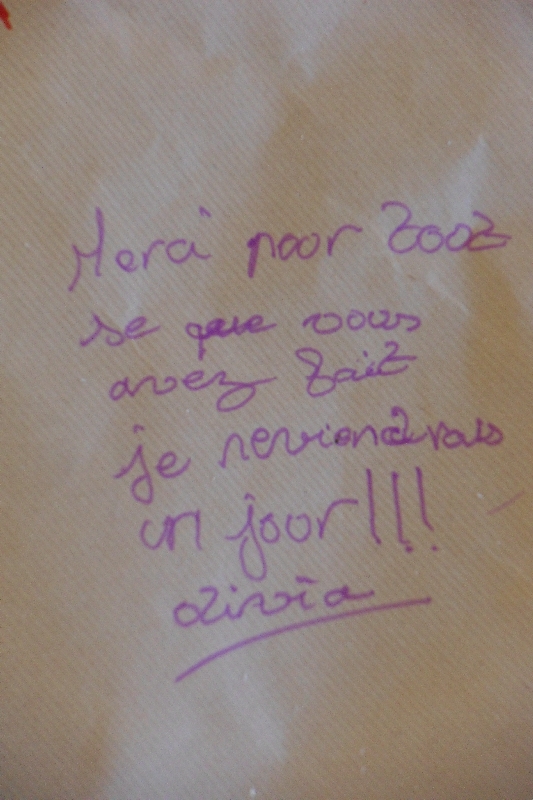 Merci pour tout
se que vous
avez fait
je reviendrais
un jour!!!
olivia